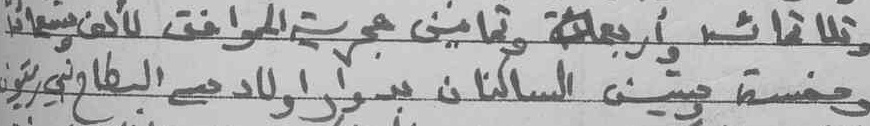 وثلاثمائة وأربعة وثمانين هجرية الموافق لألف وتسعمائة
وخمسة وستين الساكنان بدوار اولاد البطاح